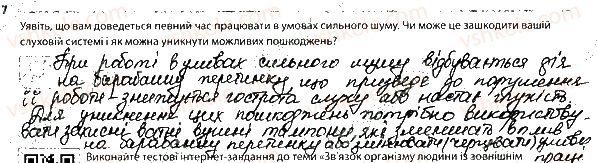 7
Уявіть, що вам доведеться певний час працювати в умовах сильного шуму. Чи може це зашкодити вашій
слуховій системі і як можна уникнути можливих пошкоджень?
При роботі в умовах сильного шуму відбувається дія
на барабанну перетинку, що призведе до порушення
її роботи - знижується гострота слуху або настає глухість
Для уникнення цих пошкоджень потрібно використову-
вати захисні ватні вушні тампони, які зменшать вплив
на барабанну перетинку або змінювати (чергувати) умови
Виконайте тестові інтернет-завдання до теми «Зв'язок організму людини із зовнішнім